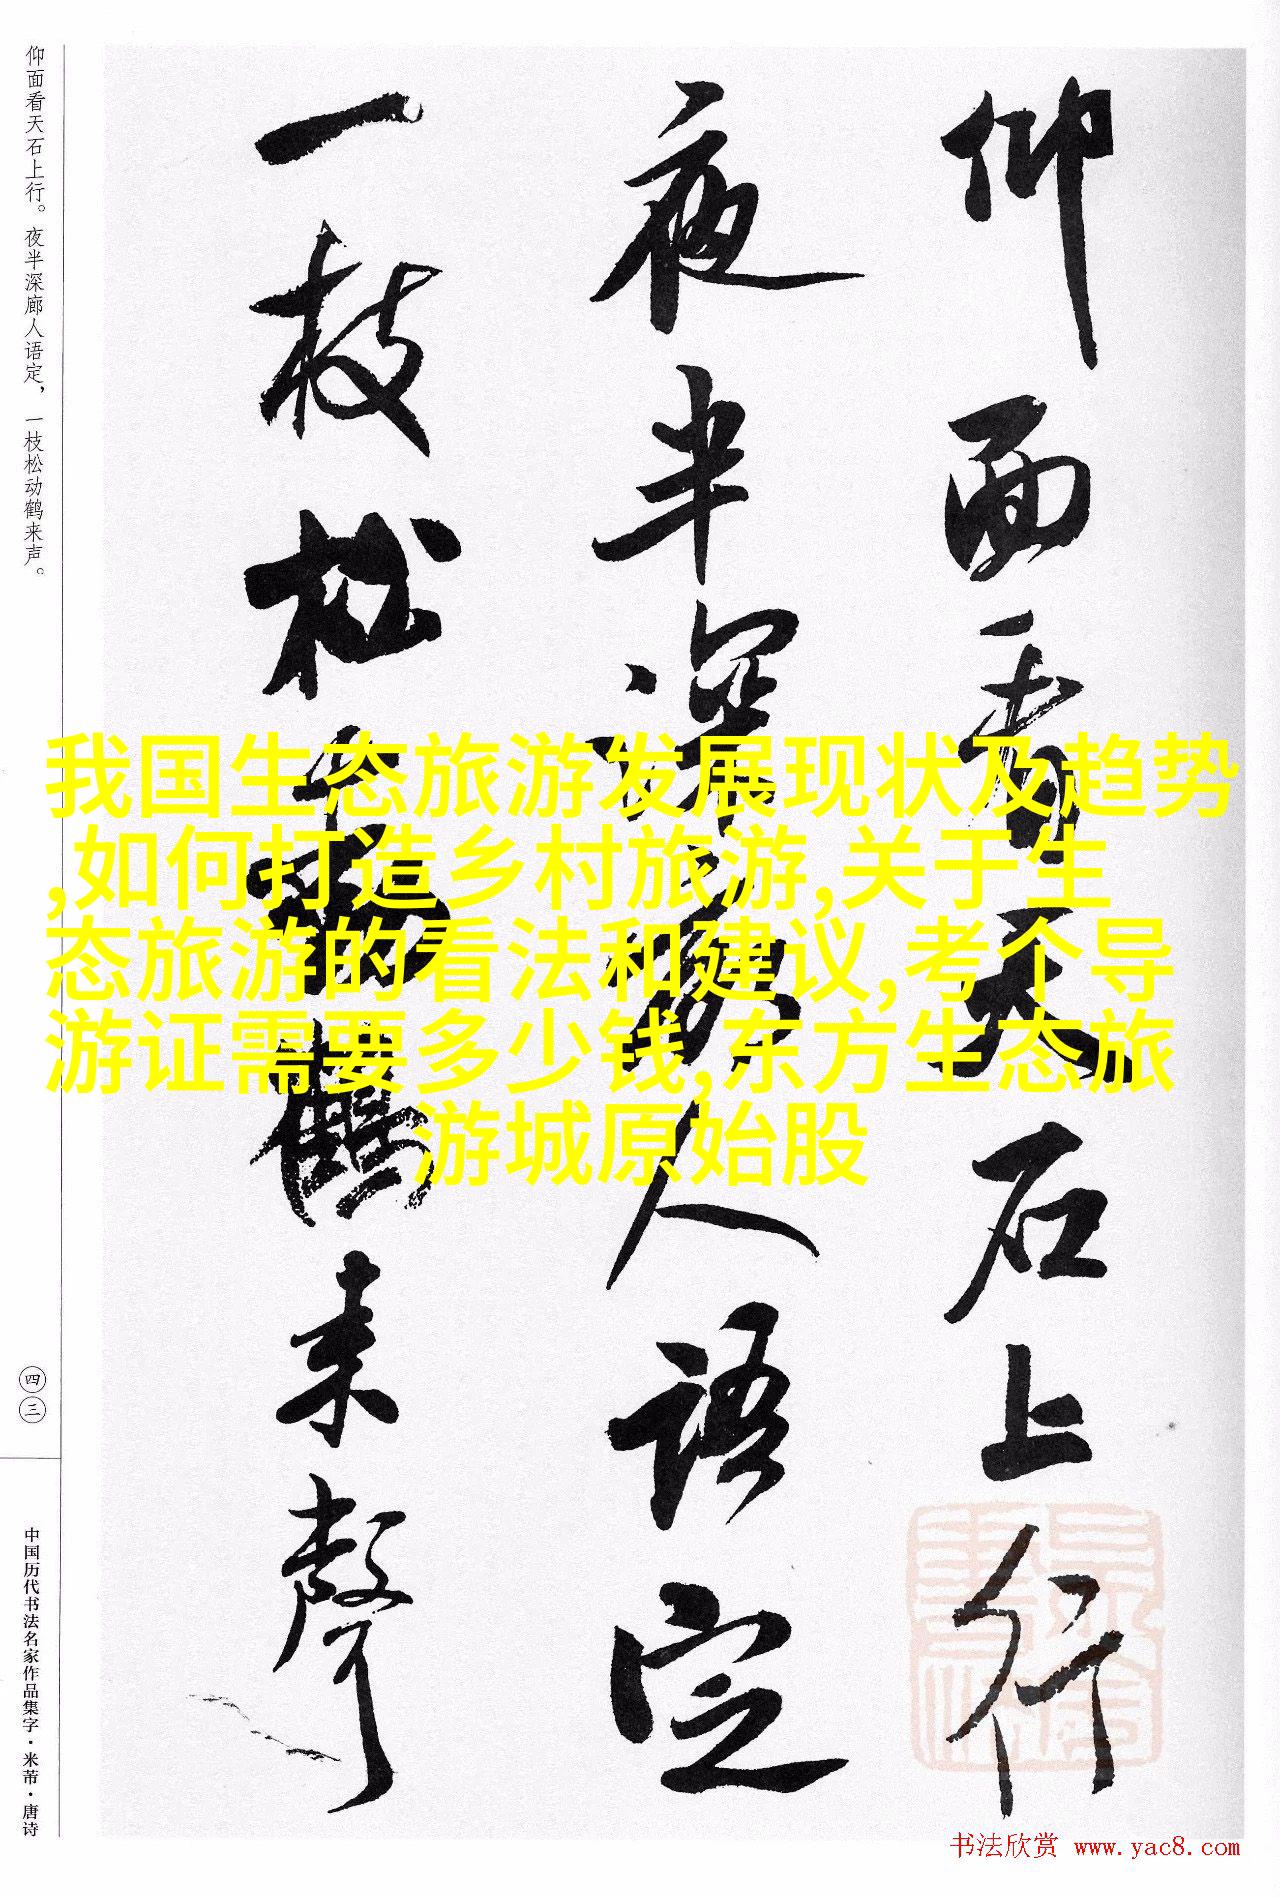 仰面看天石上行
夜半深廊人语定
一枝松动鹤来声
仰面看天石上行。夜半深廊人语定，一枝松动鹤来声。
四三
中国历代书法名家作品集字·米芾·唐诗
我国生态旅游发展现状及趋势
,如何打造乡村旅游,关于生
态旅游的看法和建议,考个导
游证需要多少钱,东方生态旅
游城原始股
书法欣赏 www.yac8.com